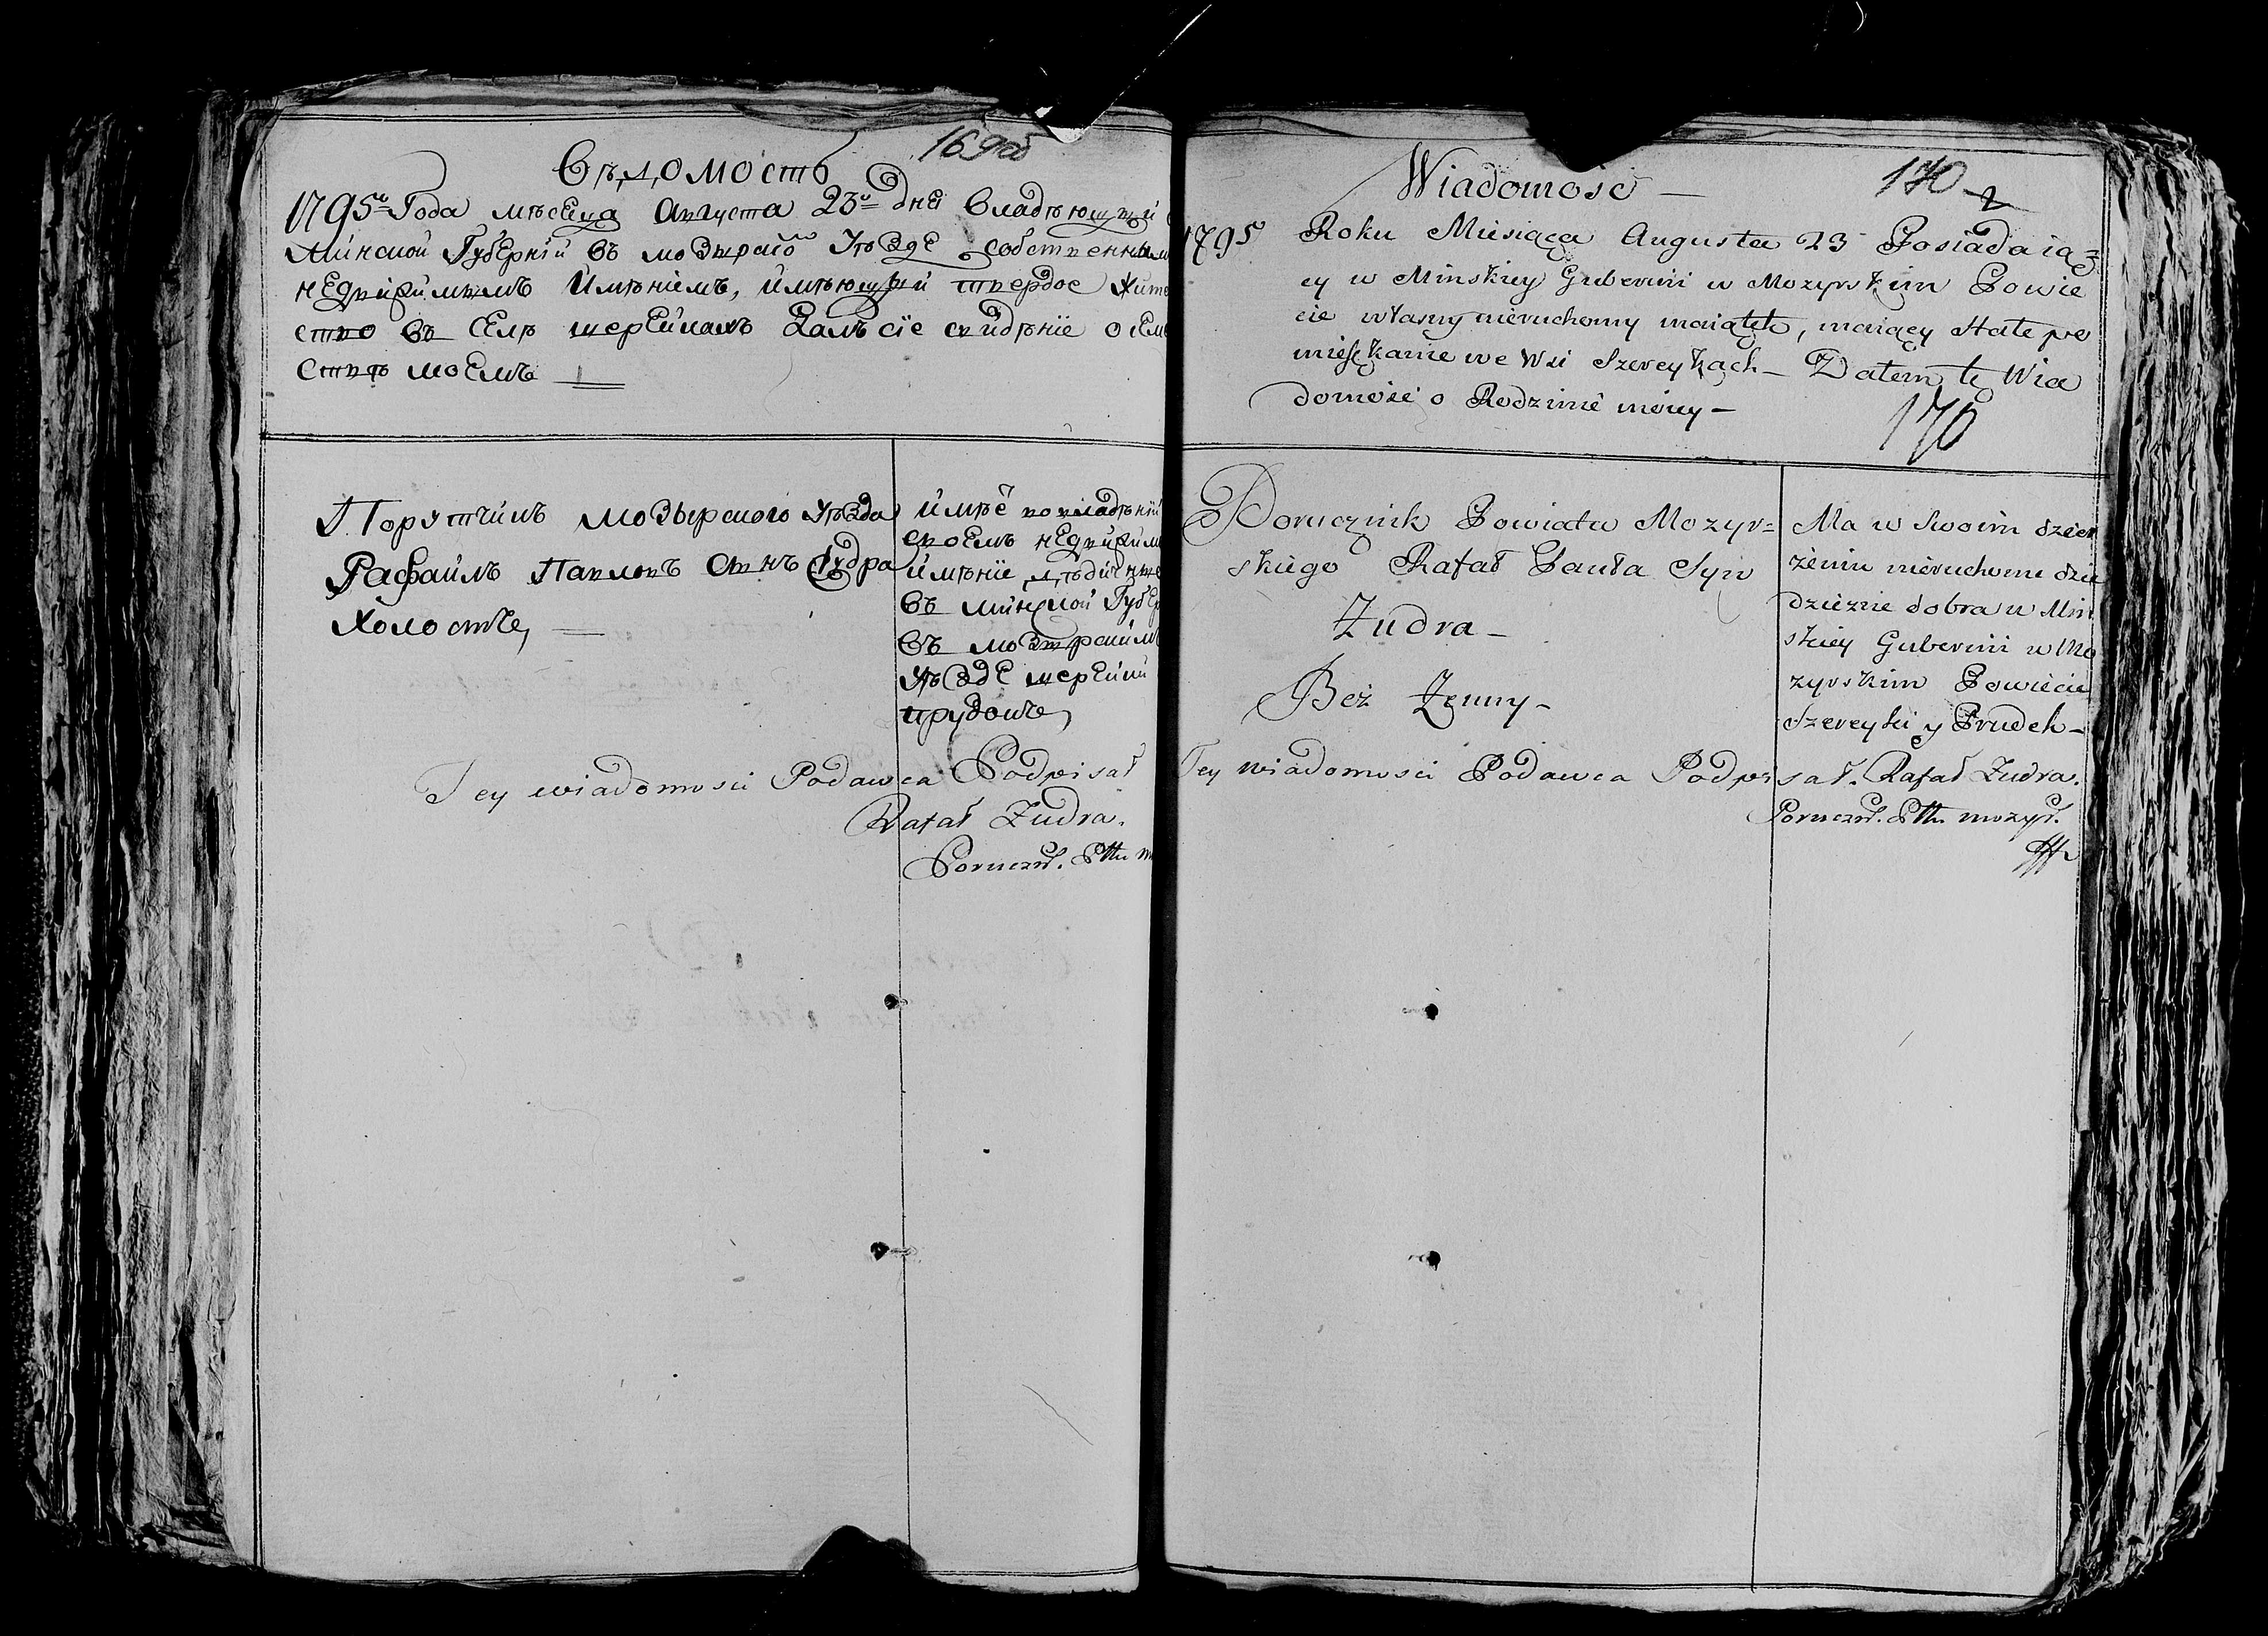 169об
Вѣдомость
1795го Года мѣсеца Августа 23го дня владѣющий
Минской Губерній въ мозырско Уѣзде собственнымъ
недвижимымъ имѣніемъ, имѣющий твердое жите
ство въ Селѣ шерейкахъ далъ сіе свидѣніе о сем
ствѣ моемъ
Поручикъ мозырского уѣзда
Рафаилъ Павловъ сынъ Жудра
Холостъ
имѣе во владѣній
своемъ недвижим
имѣніе дѣдичные
въ минской Губер
въ мозырскимъ
уѣзде шерейки
прудокъ
Tey wiadomosci Podawca Podpisał
Rafał Żudra.
Porucznk. Pttu m
170
Wiadomosc
1795 Roku Miesiąca Augusta 23 Posiadaią=
cy w Minskiey Gubernii w Mozyrskim Powie
cie własny nieruchomy maiątek, maiący stałe po
mieszkanie we Wsi Szereykach Dałem tę Wia
domość o Rodzinie moiey
170
Porucznik Powiatu Mozyr=
skiego Rafał Pawła Syn
Żudra
Bez Żenny
Ma w swoim dzier
żeniu nieruchome dzie
dziczne dobra w Min
skiey Gubernii w Mo
zyrskim Powiecie
Szereyki y Prudek
Tey wiadomosci Podawca Podpisał. Rafał Żudra.
Porucznk. Pttu mozyr.